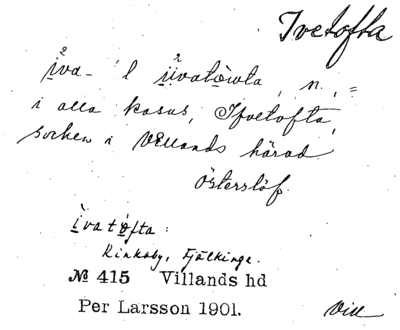 Ivetofta
i̊va- l ii̊vatòwta, n., =
i alla kasus, Ifvetofta,
socken i Villands härad
Österslöf.
ìvatófta:
Kinkaby, Fjälkinge.
№ 415 Villands hd
Per Larsson 1901.
Vill